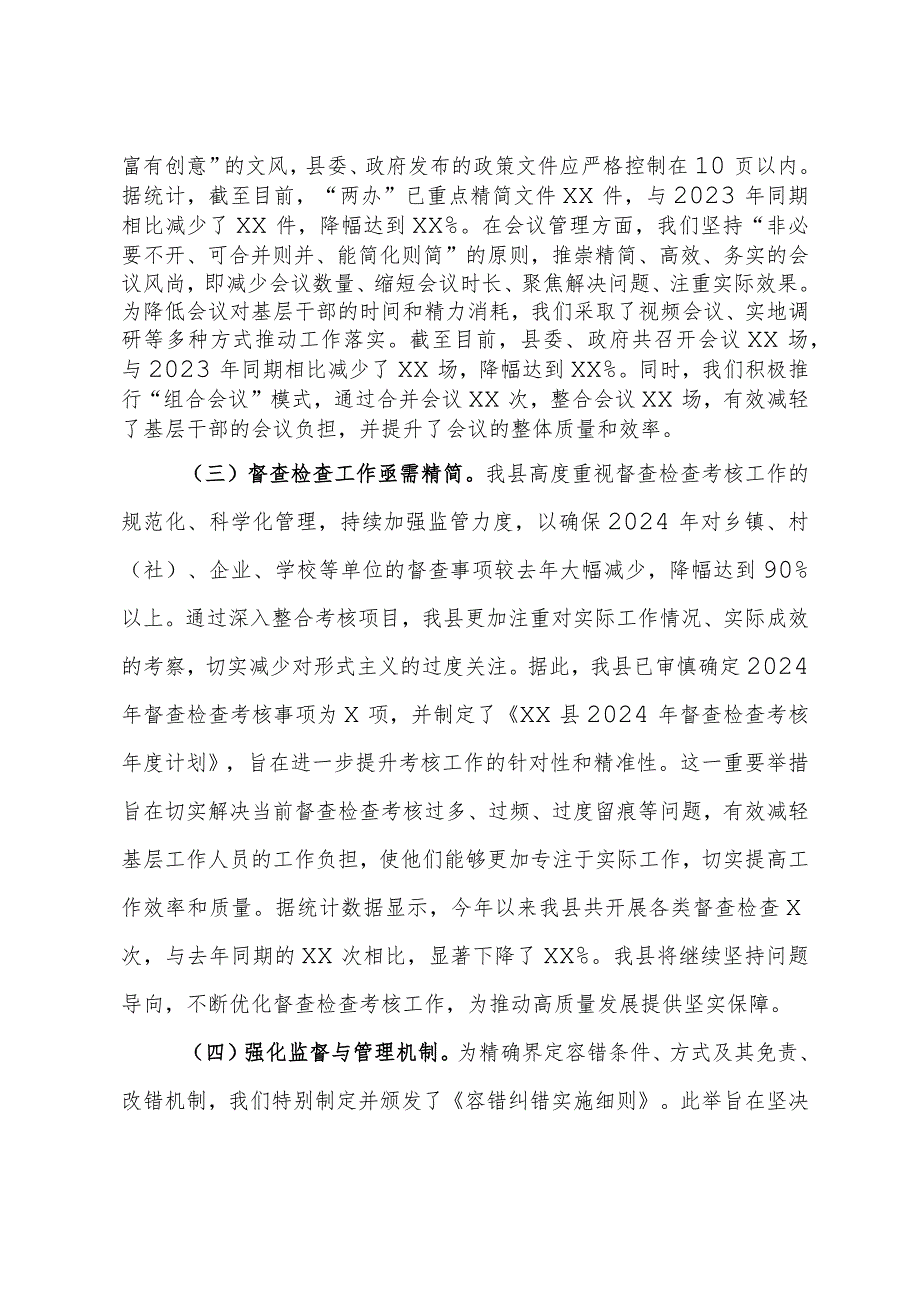 富有创意”的文风，县委、政府发布的政策文件应严格控制在 10 页以内。
据统计，截至目前，“两办”已重点精简文件 XX 件，与 2023 年同期
相比减少了 XX 件，降幅达到 XX%。在会议管理方面，我们坚持“非必
要不开、可合并则并、能简化则简”的原则，推崇精简、高效、务实的会
议风尚，即减少会议数量、缩短会议时长、聚焦解决问题、注重实际效果。
为降低会议对基层干部的时间和精力消耗，我们采取了视频会议、实地调
研等多种方式推动工作落实。截至目前，县委、政府共召开会议 XX 场，
与 2023 年同期相比减少了 XX 场，降幅达到 XX%。同时，我们积极推
行“组合会议”模式，通过合并会议 XX 次，整合会议 XX 场，有效减轻
了基层干部的会议负担，并提升了会议的整体质量和效率。
（三）督查检查工作亟需精简。我县高度重视督查检查考核工作的
规范化、科学化管理，持续加强监管力度，以确保 2024 年对乡镇、村
（社）、企业、学校等单位的督查事项较去年大幅减少，降幅达到 90%
以上。通过深入整合考核项目，我县更加注重对实际工作情况、实际成效
的考察，切实减少对形式主义的过度关注。据此，我县已审慎确定 2024
年督查检查考核事项为 X 项，并制定了《XX 县 2024 年督查检查考核
年度计划》，旨在进一步提升考核工作的针对性和精准性。这一重要举措
旨在切实解决当前督查检查考核过多、过频、过度留痕等问题，有效减轻
基层工作人员的工作负担，使他们能够更加专注于实际工作，切实提高工
作效率和质量。据统计数据显示，今年以来我县共开展各类督查检查 X
次，与去年同期的 XX 次相比，显著下降了 XX%。我县将继续坚持问题
导向，不断优化督查检查考核工作，为推动高质量发展提供坚实保障。
（四）强化监督与管理机制。为精确界定容错条件、方式及其免责、
改错机制，我们特别制定并颁发了《容错纠错实施细则》。此举旨在坚决